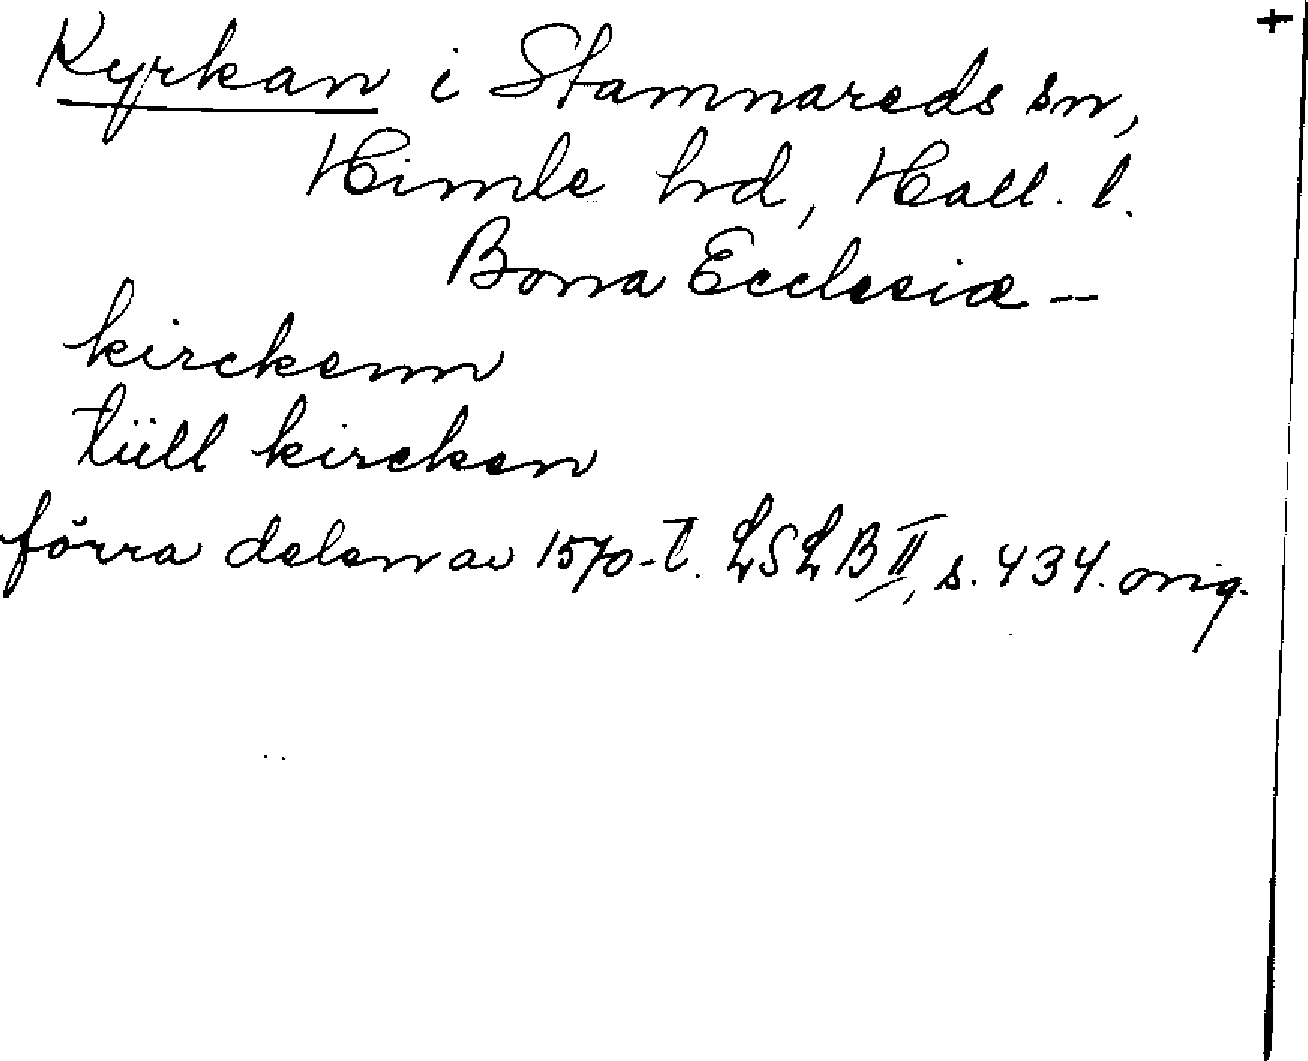 +
Kyrkan i Stamnareds sn,
Himle hd, Hall. l.
Bona Ecclesiæ –
kirckenn
tüll kircken
förra delen av 1570-t. LSLB II, s. 434. orig.